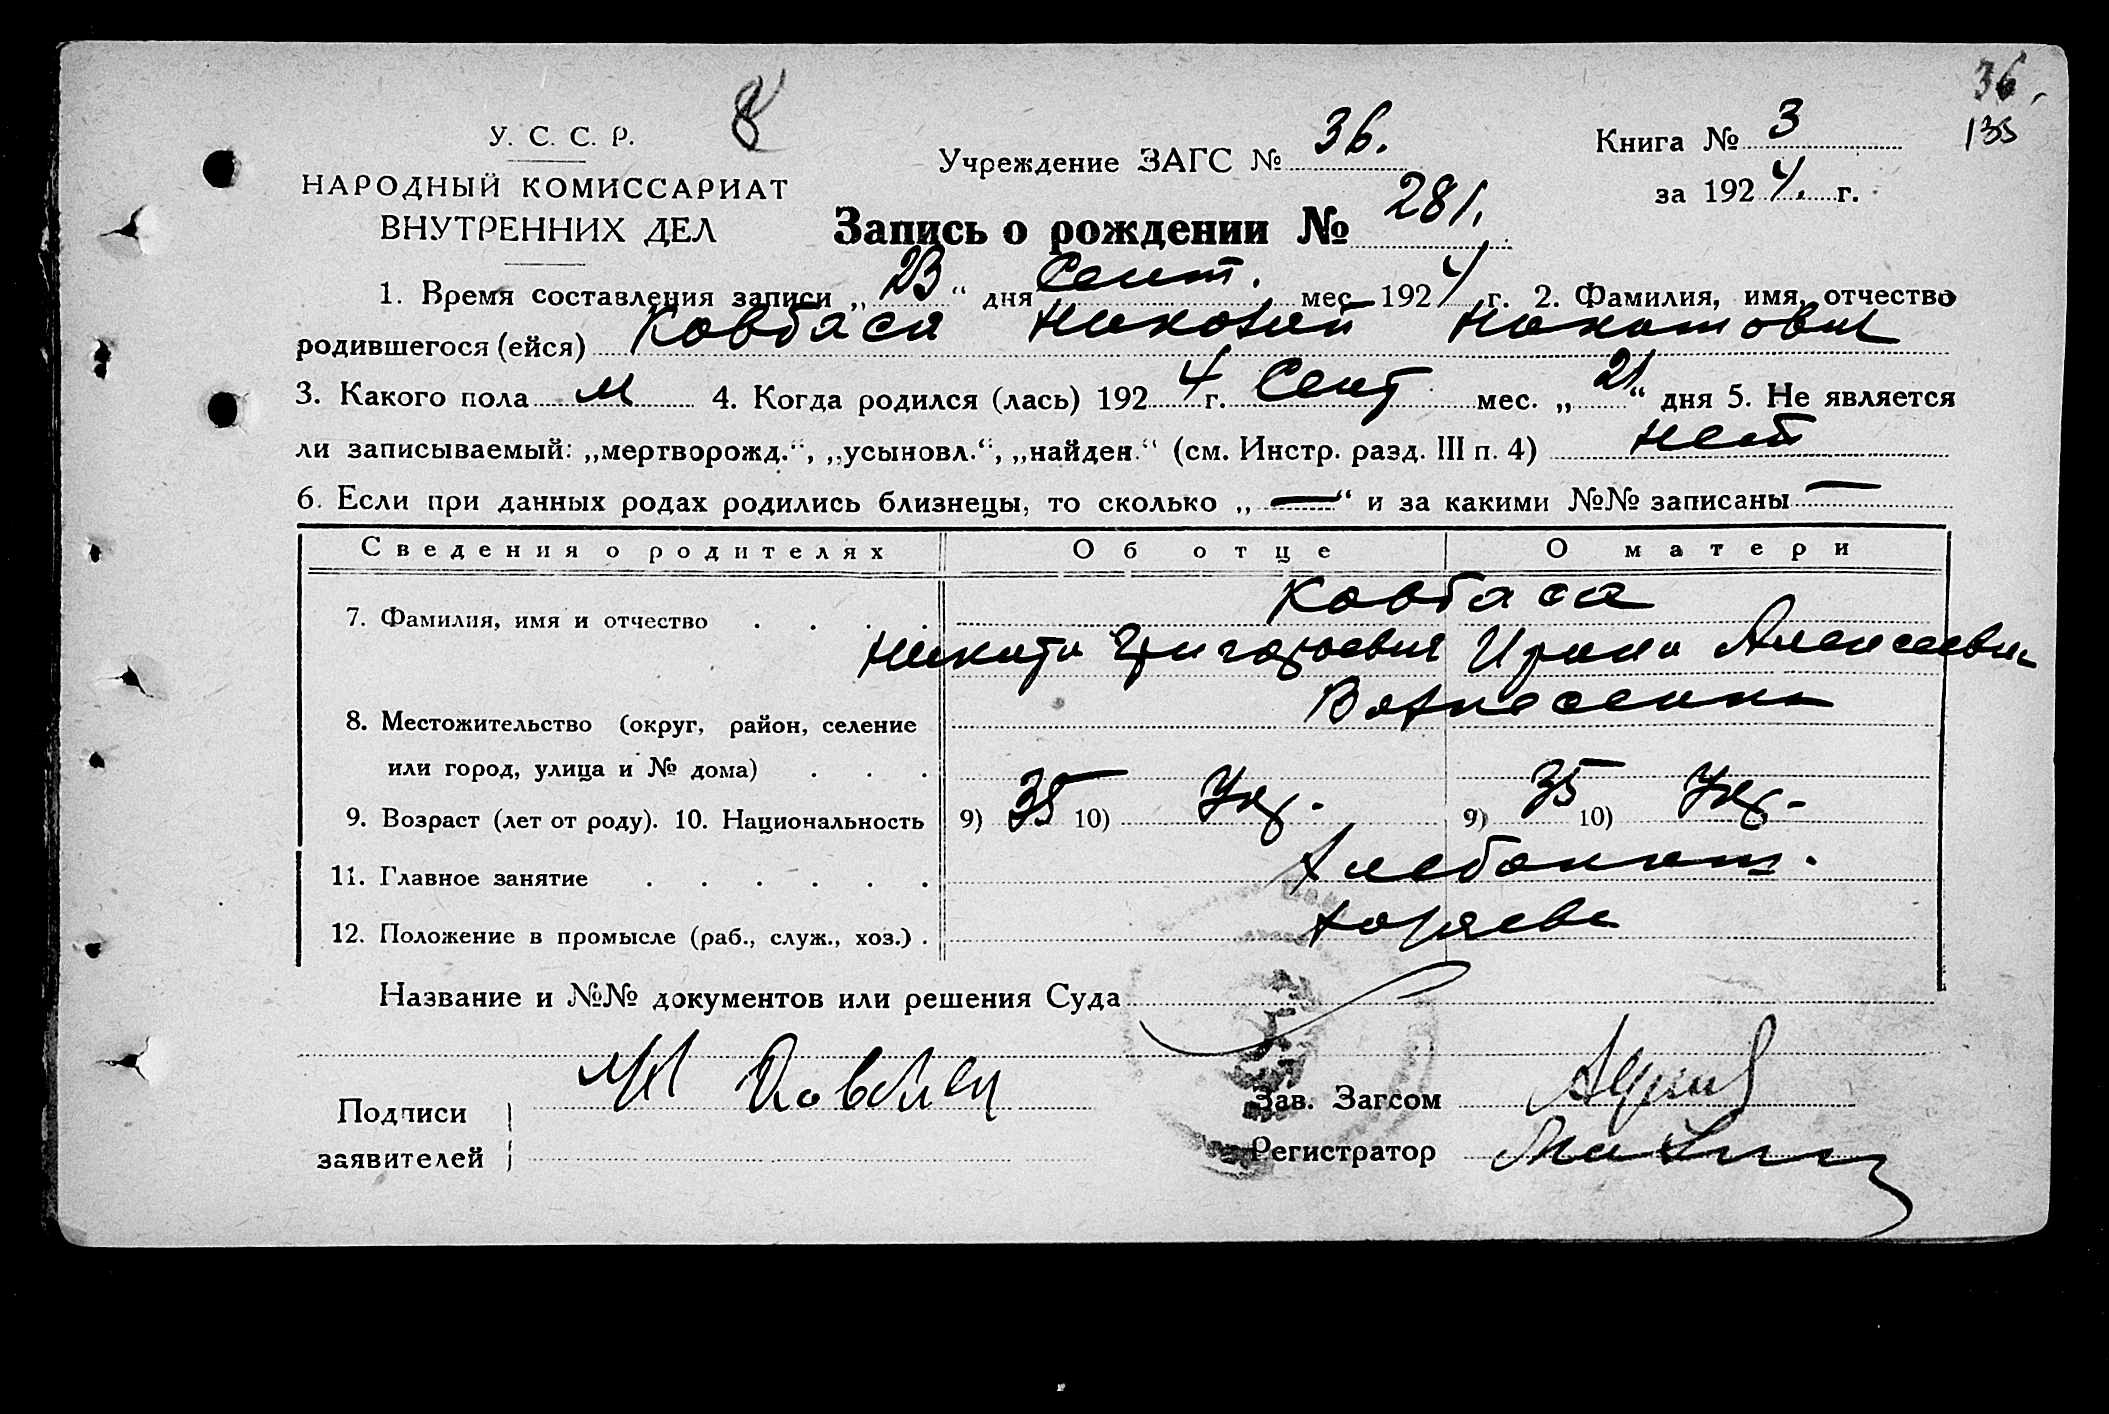 36.
135
8
У. С. С. Р.
НАРОДНЫЙ КОМИССАРИАТ
ВНУТРЕННИХ ДЕЛ
Учреждение ЗАГС № 36.
Книга № 3
за 1924. г.
Запись о рождении № 281.
1. Время составления записи „23“ дня Сент. мес 1924 г. 2. Фамилия, имя, отчество
родившегося (ейся) Ковбаса Николай Никитович
3. Какого пола м 4. Когда родился (лась) 1924 г. Сент мес. „21“ дня 5. Не является
ли записываемый: „мертворожд.“, „усыновл.“, „найден.“ (см. Инстр. разд. III п. 4) нет
6. Если при данных родах родились близнецы, то сколько „—“ и за какими №№ записаны —
Сведения о родителях Об отце О матери
7. Фамилия, имя и отчество . . . . Ковбаса
Никита Григорьевич Ирина Алексеевна
8. Местожительство (округ, район, селение
или город, улица и № дома) . . .
9. Возраст (лет от роду). 10. Национальность 9) 35 10) Укр. 9) 35 10) Укр.
11. Главное занятие . . . . . . Хлебопаш.
12. Положение в промысле (раб., служ., хоз.) . хозяева
Название и №№ документов или решения Суда
Подписи
заявителей
Зав. Загсом
Регистратор